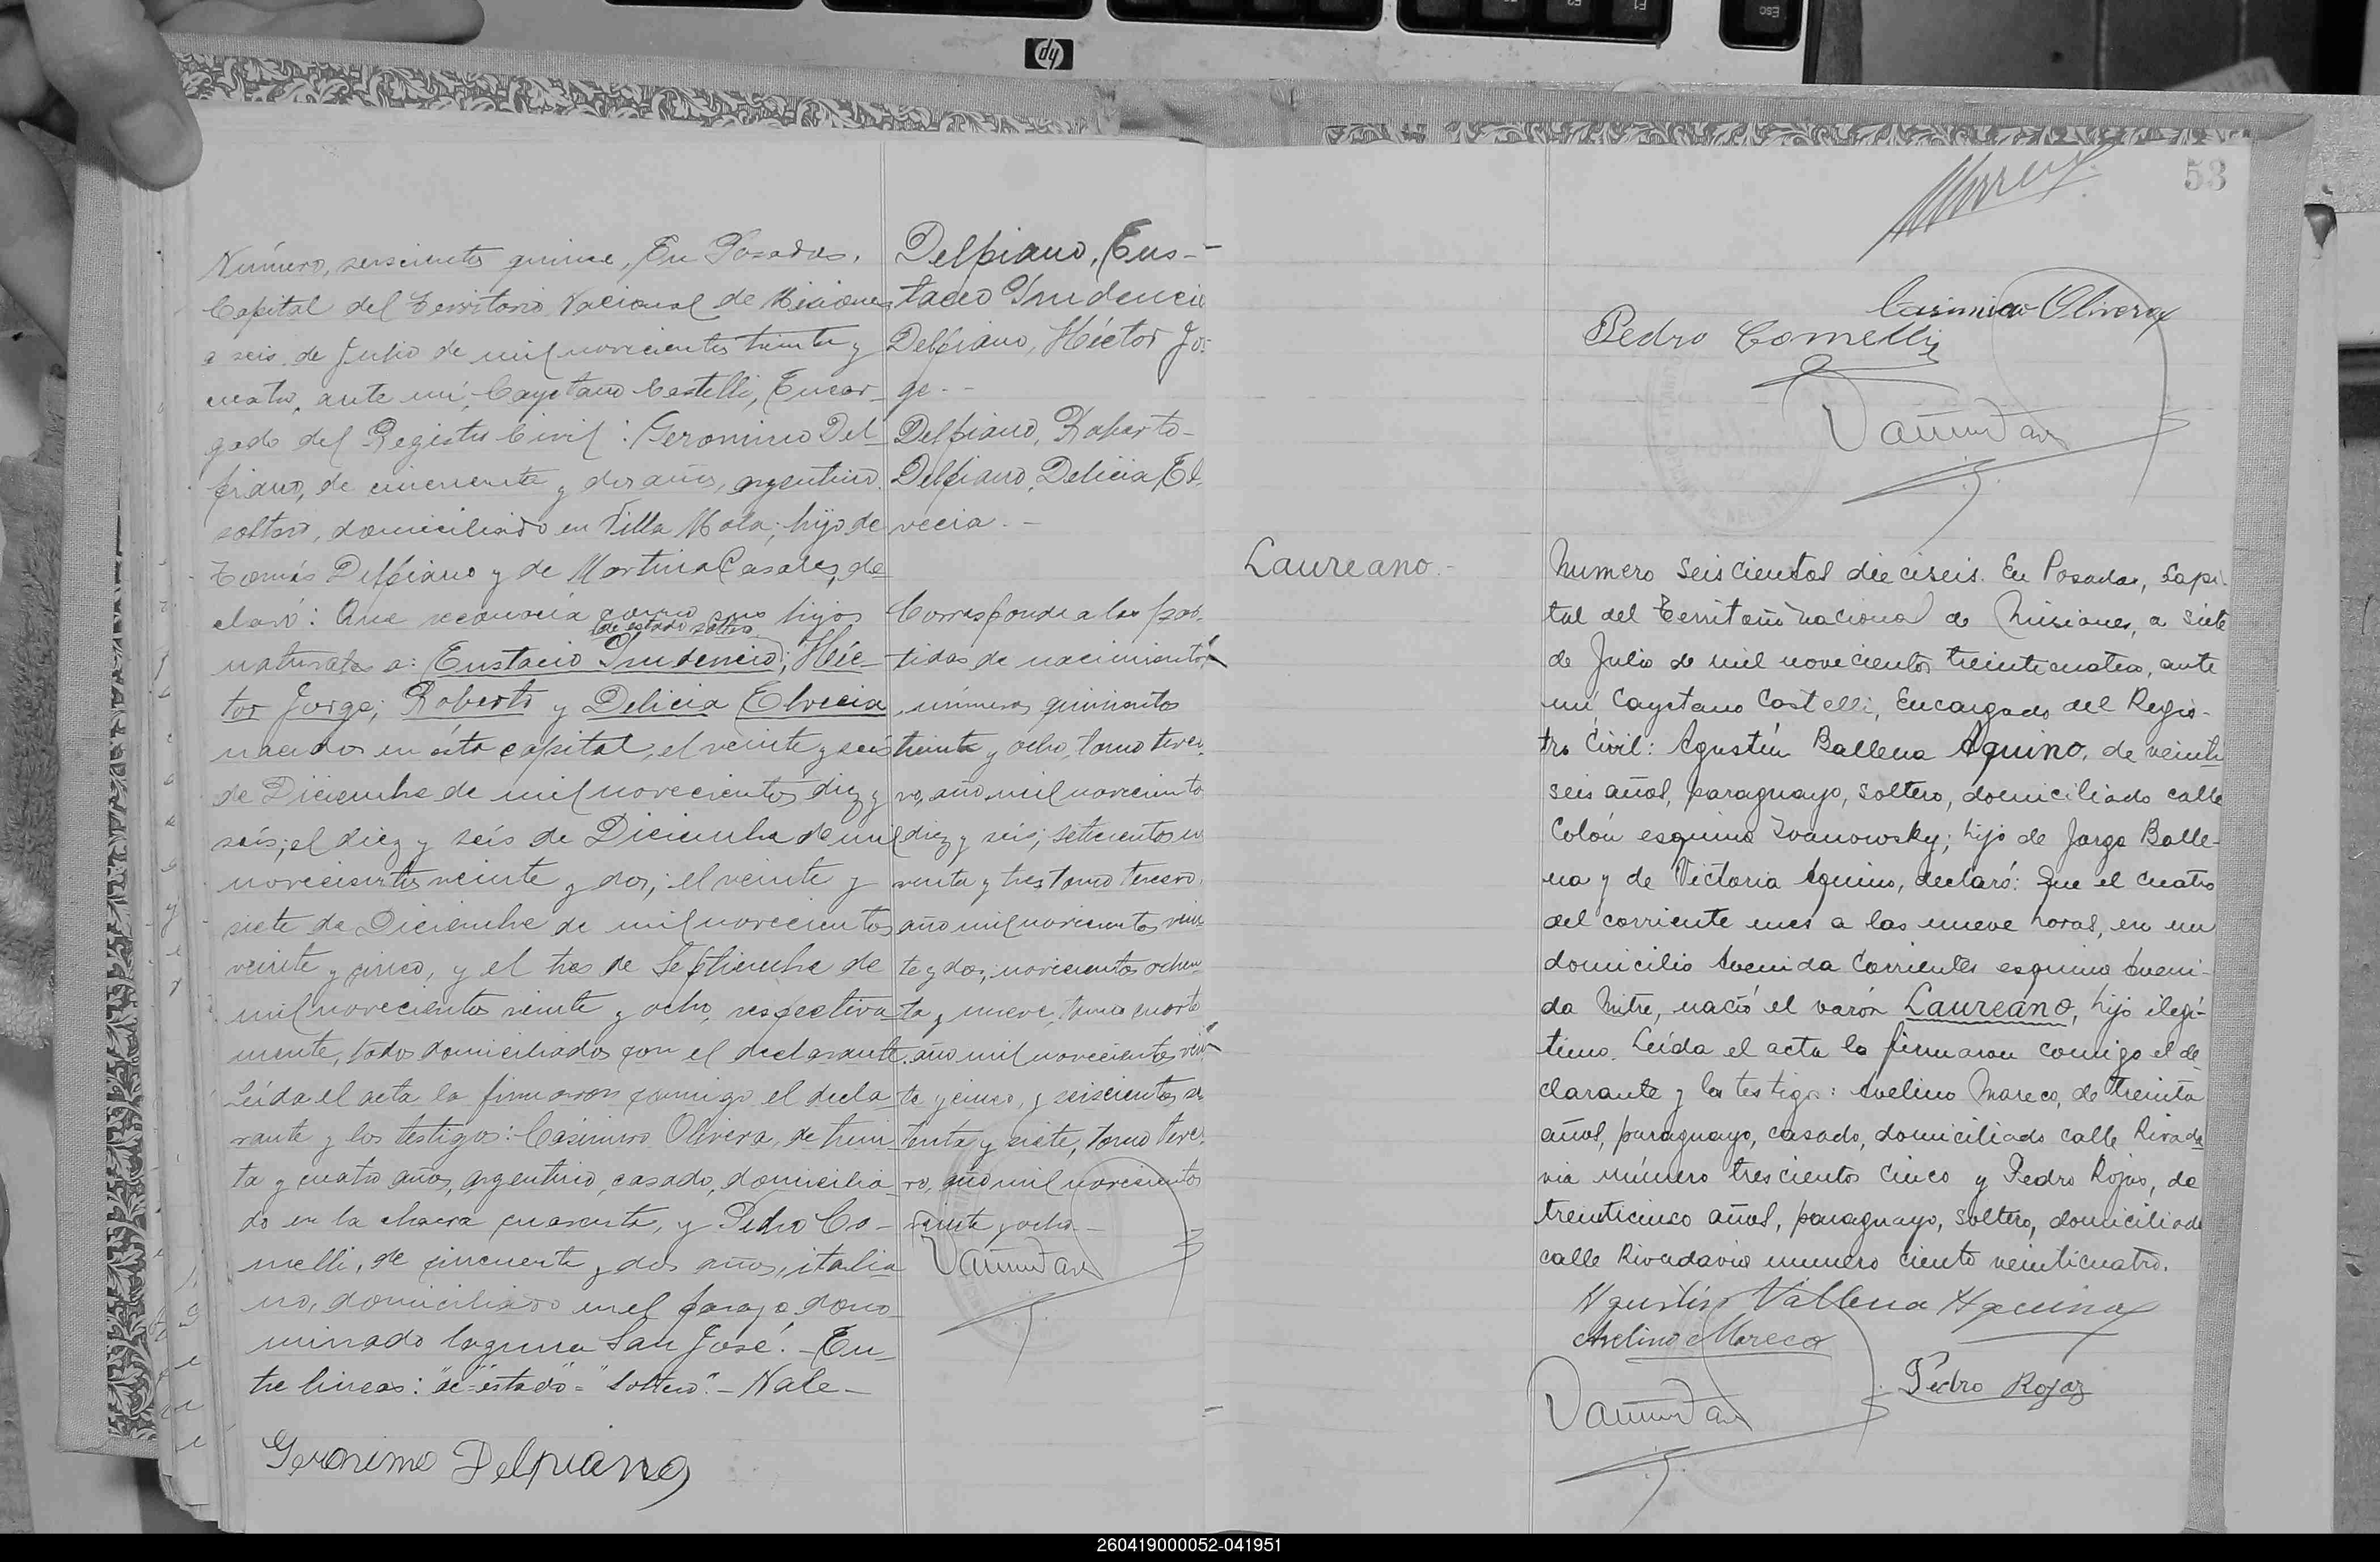 Número, seiscientos quince, En Posadas,
Capital del Territorio Nacional de Misiones
a seis de Julio de mil novecientos treinta y
cuatro, ante mí, Cayetano Castelli, Encar-
gado del Registro Civil: Geronimo Del-
piano, de cincuenta y dos años, argentino
soltero, domiciliado en Villa Mola; hijo de
Tomás Delpiano y de Martina Casales, de-
claró: Que reconocía como sus hijos
de estado soltero
naturales a: Eustacio Prudencio; Héc-
tor Jorge; Roberto y Delicia Elvecia
nacidos en ésta capital, el veinte y seis
de Diciembre de mil novecientos diez y
seis; el diez y seis de Diciembre de mil
novecientos veinte y dos; el veinte y
siete de Diciembre de mil novecientos
veinte y cinco, y el tres de Septiembre de
mil novecientos veinte y ocho, respectiva-
mente, todos domiciliados con el declarante.
Leída el acta la firmaron conmigo el decla-
rante y los testigos: Casimiro Olivera, de trein-
ta y cuatro años, argentino, casado, domicilia-
do en la chacra cuarenta, y Pedro Co-
melli, de cincuenta y dos años, italia-
no, domiciliado en el paraje deno-
minado laguna San José. - En-
tre lineas: "de estado" = "soltero". - Vale -
Geronimo Delpiano
Delpiano, Eus-
tacio Prudencio
Delpiano, Héctor Jo:
ge. -
Delpiano, Roberto -
Delpiano, Delicia El-
vecia. -
Corresponde a las par-
tidas de nacimiento,
números quinientos
treinta y ocho, tomo terce-
ro, año mil novecientos
diez y seis; setecientos no
venta y tres tomo tercero,
año mil novecientos vein
te y dos; novecientos ochen
ta y nueve, tomo cuarto
año mil novecientos vein
te y cinco, y seiscientos se
tenta y siete, tomo terce-
ro, año mil novecientos
veinte y ocho -
53
Casimiro Olivera
Pedro Comelli
Laureano. -
Numero seiscientos dieciseis. En Posadas, Capi-
tal del Territorio Nacional de Misiones, a siete
de Julio de mil novecientos treinticuatro, ante
mí Cayetano Castelli, Encargado del Regis-
tro Civil: Agustín Ballena Aquino, de veinti
seis años, paraguayo, soltero, domiciliado calle
Colón esquina Ivanowsky; hijo de Jorge Balle-
na y de Victoria Aquino, declaró: Que el cuatro
del corriente mes a las nueve horas, en un
domicilio Avenida Corrientes esquina Aveni-
da Mitre, nació el varón Laureano, hijo ilegí-
timo. Leída el acta la firmaron conmigo el de-
clarante y los testigos: Avelino Mareco, de treinta
años, paraguayo, casado, domiciliado calle Rivada
via número trescientos cinco y Pedro Rojas, de
treinticinco años, paraguayo, soltero, domiciliado
calle Rivadavia numero ciento veinticuatro.
Agustín Vallena Aquino
Avelino Mareco
Pedro Rojas
260419000052-041951